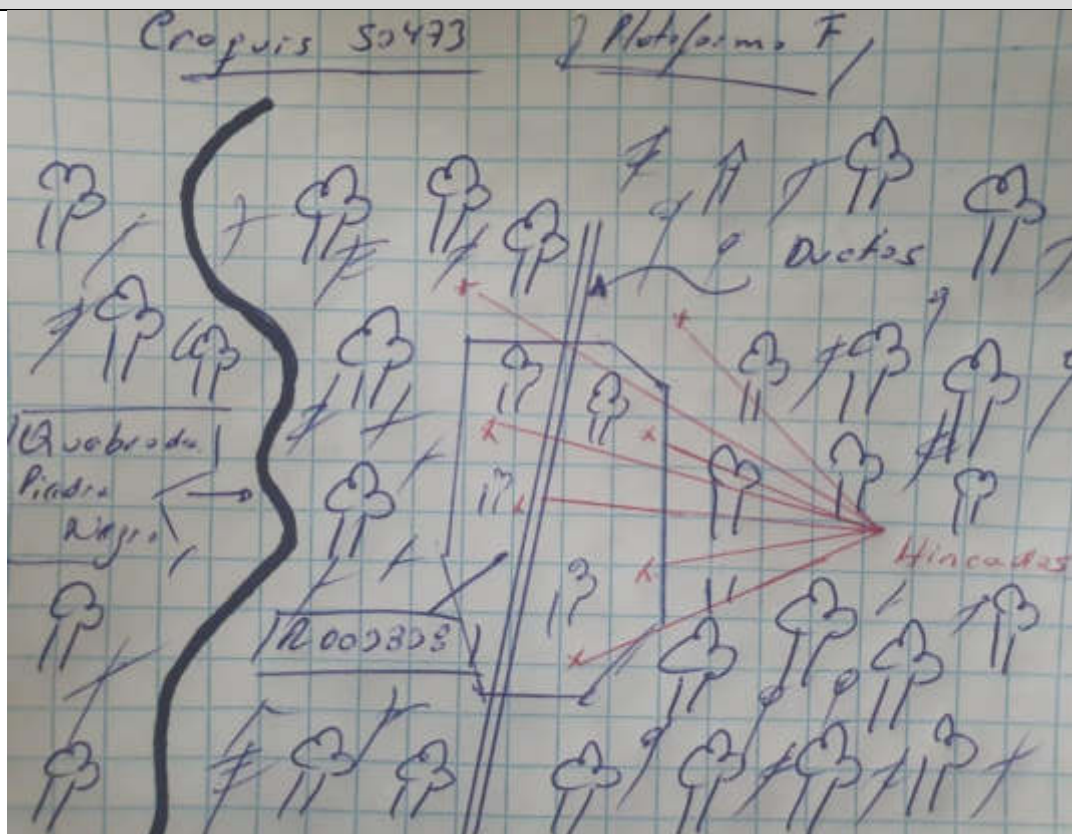 Croquis S0473
Plataforma F
Ductos
Quebrada
Piedra
Negra
Hincados
R003838